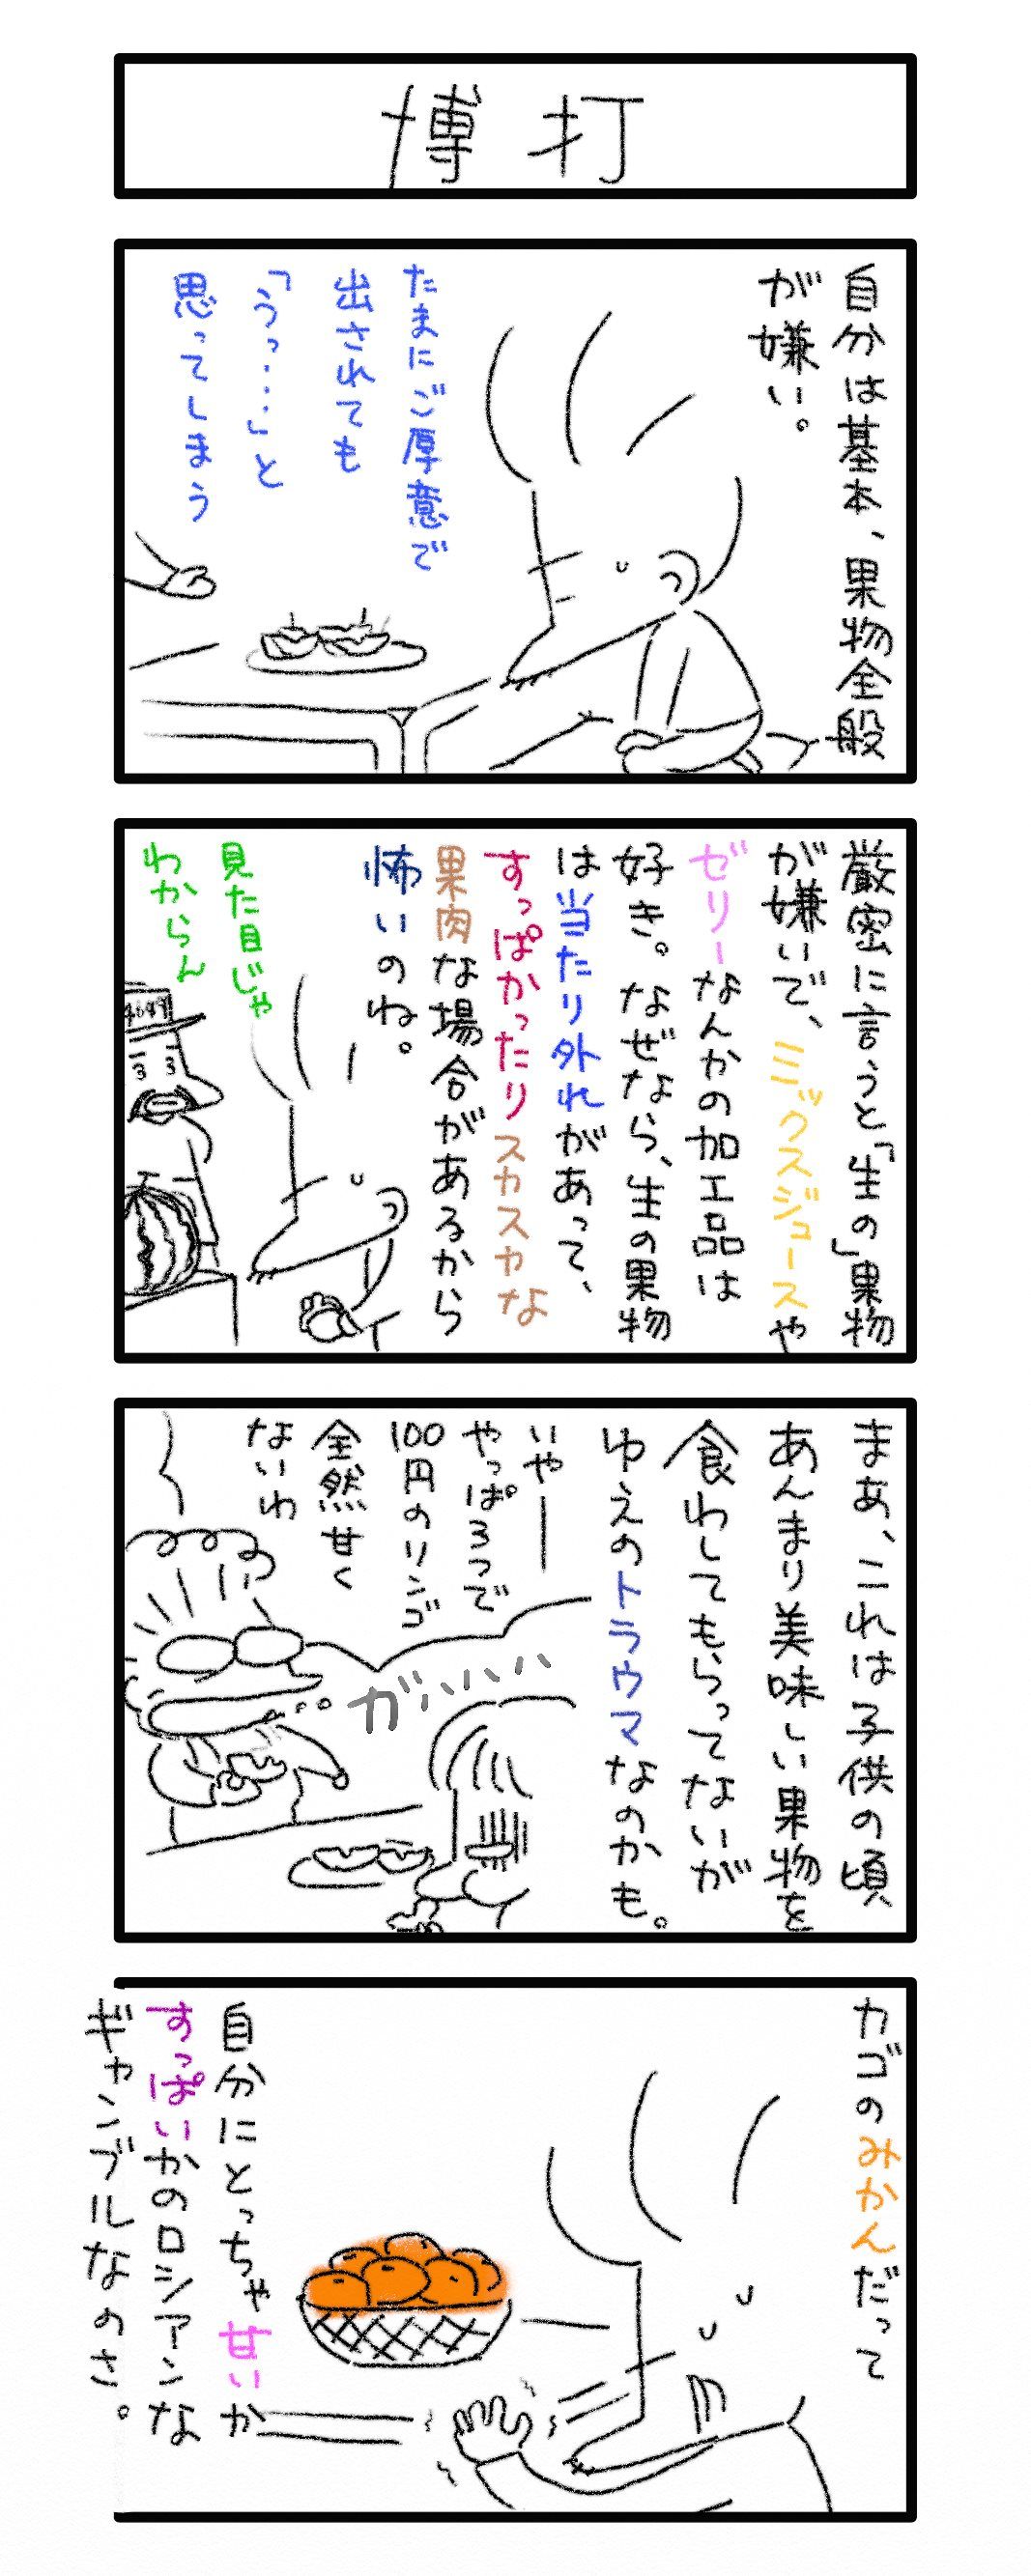 博打
自分は基本、果物全般
が嫌い。
たまにご厚意で
出されても
「うっ・・・・」と
思ってしまう
厳密に言うと「生の」果物
が嫌いで、ミックスジュースや
ゼリーなんかの加工品は
好き。なぜなら、生の果物
は当たり外れがあって、
すっぱかったりスカスカな
果肉な場合があるから
怖いのね。
見た目じゃ
わからん
4649
まあ、これは子供の頃
あんまり美味しい果物を
食わしてもらってないが
ゆえのトラウマなのかも。
いやー
やっぱ3つで
100円のリンゴ
全然甘く
ないわ
ガハハハ
カゴのみかんだって
自分にとっちゃ甘いか
すっぱいかのロシアンな
ギャンブルなのさ。